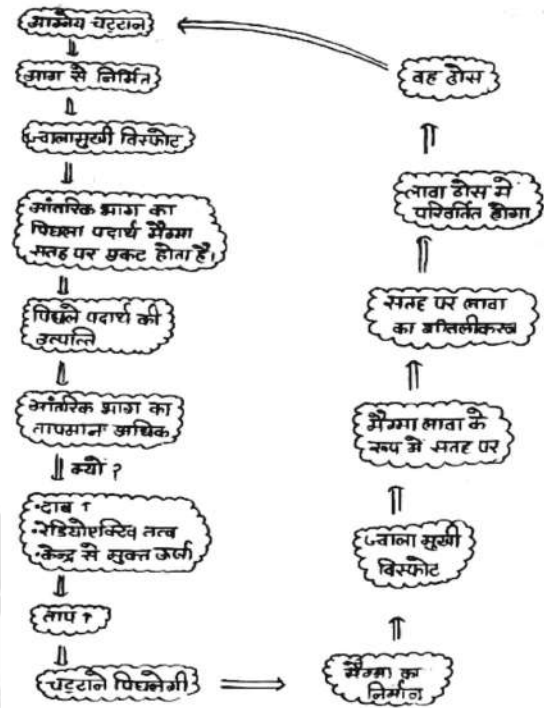 आग्नेय चट्टान
आग से निर्मित
ज्वालामुखी विस्फोट
आंतरिक भाग का
पिघला पदार्थ मैग्मा
सतह पर प्रकट होता है।
पिघले पदार्थ की
उत्पत्ति
आंतरिक भाग का
तापमान अधिक
क्यों ?
• दाब ↑
• रेडियोएक्टिव तत्व
• केन्द्र से मुक्त ऊर्जा
ताप ↑
चट्टाने पिघलेगी
मैग्मा का
निर्माण
ज्वाला मुखी
विस्फोट
मैग्मा लावा के
रूप में सतह पर
सतह पर लावा
का
लावा ठोस में
परिवर्तित होगा
वह ठोस